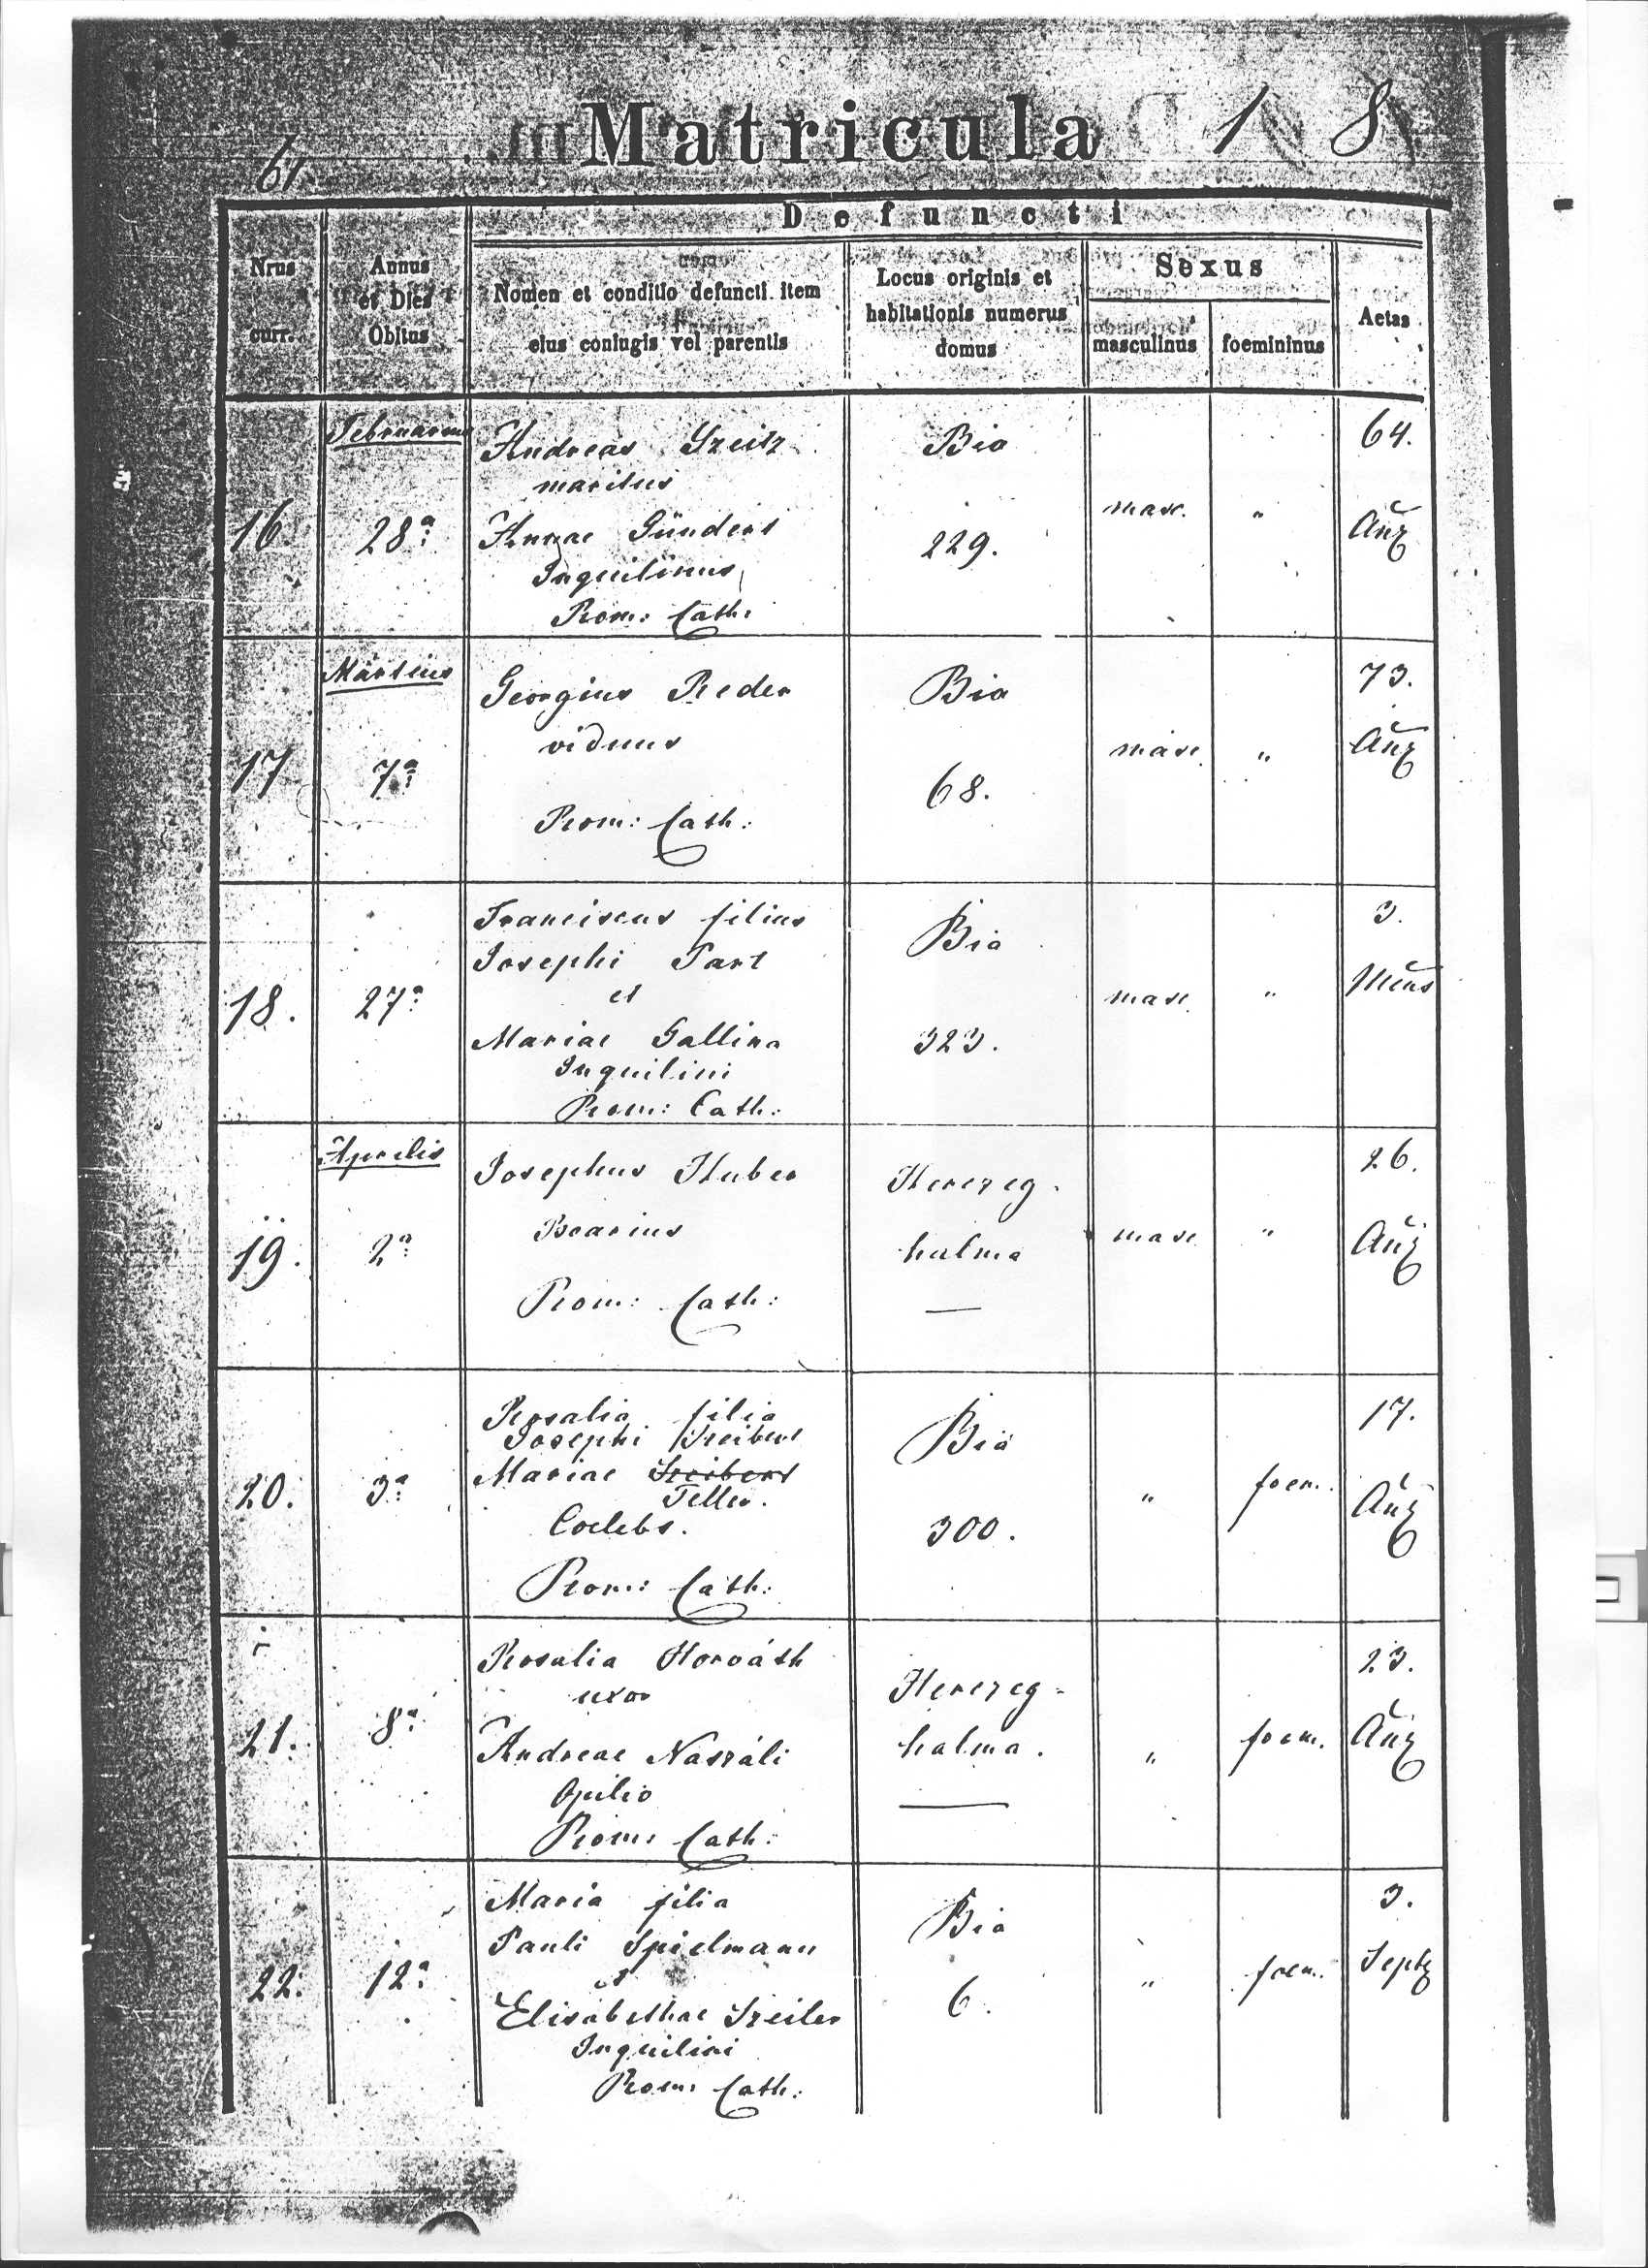 61.
Matricula
1 8
Defuncti
Nrus
curr.
Annus
et Dies
Obitus
Nomen et conditio defuncti item
eius coniugis vel parentis
Locus originis et
habitationis numerus
domus
Sexus
masculinus
foemininus
Aetas
Februarius
16.
28ª
Andreas Szeitz
maritus
Annae Günderl
Inquilinus
Rom: Cath:
Bia
229.
masc.
"
64.
Martius
17
7ª
Georgius Reder
viduus
Rom: Cath:
Bia
68.
masc.
"
73.
18.
27ª
Franciscus filius
Josephi Part
et
Mariae Gallina
Inquilini
Rom: Cath:
Bia
323.
masc.
"
3.
Mens
Aprilis
19.
2ª
Josephus Huber
Boarius
Rom: Cath:
Herczeg-
halma
masc.
"
26.
20.
3ª
Rosalia filia
Josephi Szeibert
Mariae Szeibert
Feller.
Coelebs.
Rom: Cath:
Bia
300.
"
foem.
17.
21.
8ª
Rosalia Horváth
uxor
Andreae Naszáli
Opilio
Rom: Cath:
Herczeg-
halma.
"
foem.
23.
22.
12ª
Maria filia
Pauli Spielmann
et
Elisabethae Szeiler
Inquilini
Rom: Cath:
Bia
6.
"
foem.
3.